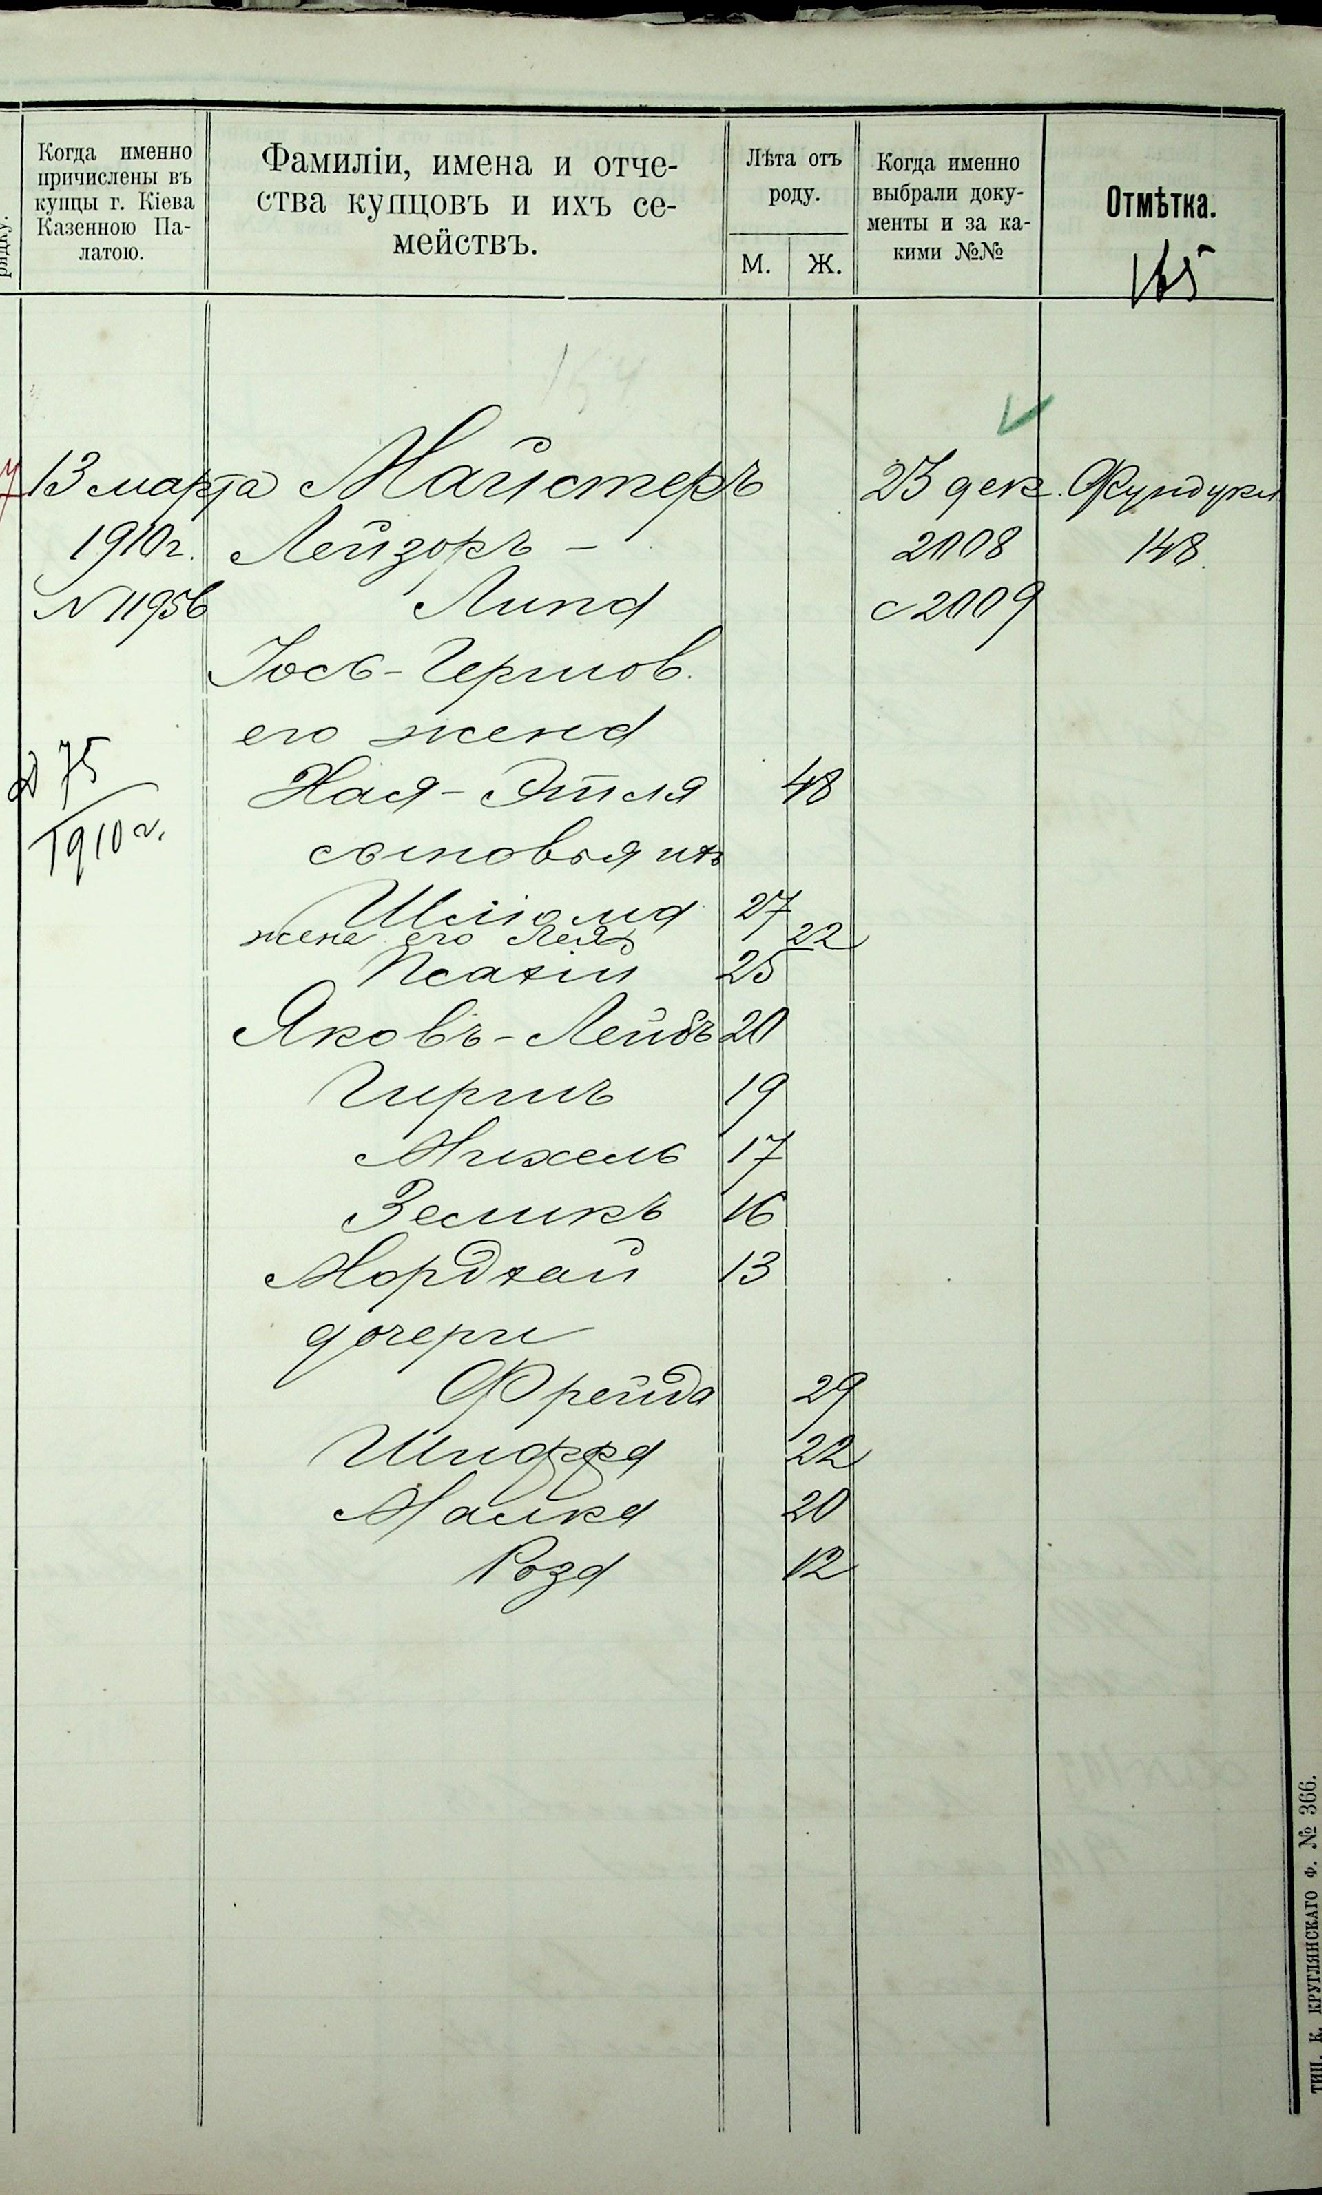 рядку.
Когда именно
причислены въ
купцы г. Кіева
Казенною Па-
латою.
Фамиліи, имена и отче-
ства купцовъ и ихъ се-
мействъ.
Лѣта отъ
роду.
М. Ж.
Когда именно
выбрали доку-
менты и за ка-
кими №№
Отмѣтка.
165
154
13 марта Майстеръ 23 дек. Фундукл.
1910г. Лейзоръ - 2008 148
№ 11956 Липа с 2009
Іось-Гершов.
его жена
Хая-Этля 48
сыновья ихъ
Шліома 27
жена его Лея 22
Исакій 25
Яковъ-Лейбъ 20
Гиршъ 19
Михель 17
Зеликъ 16
Мордхай 13
дочери
Фрейда 29
Шифра 22
Малка 20
Роза 12
Д 75
1910 г.
ТИП. К. КРУГЛЯНСКАГО Ф. № 366.